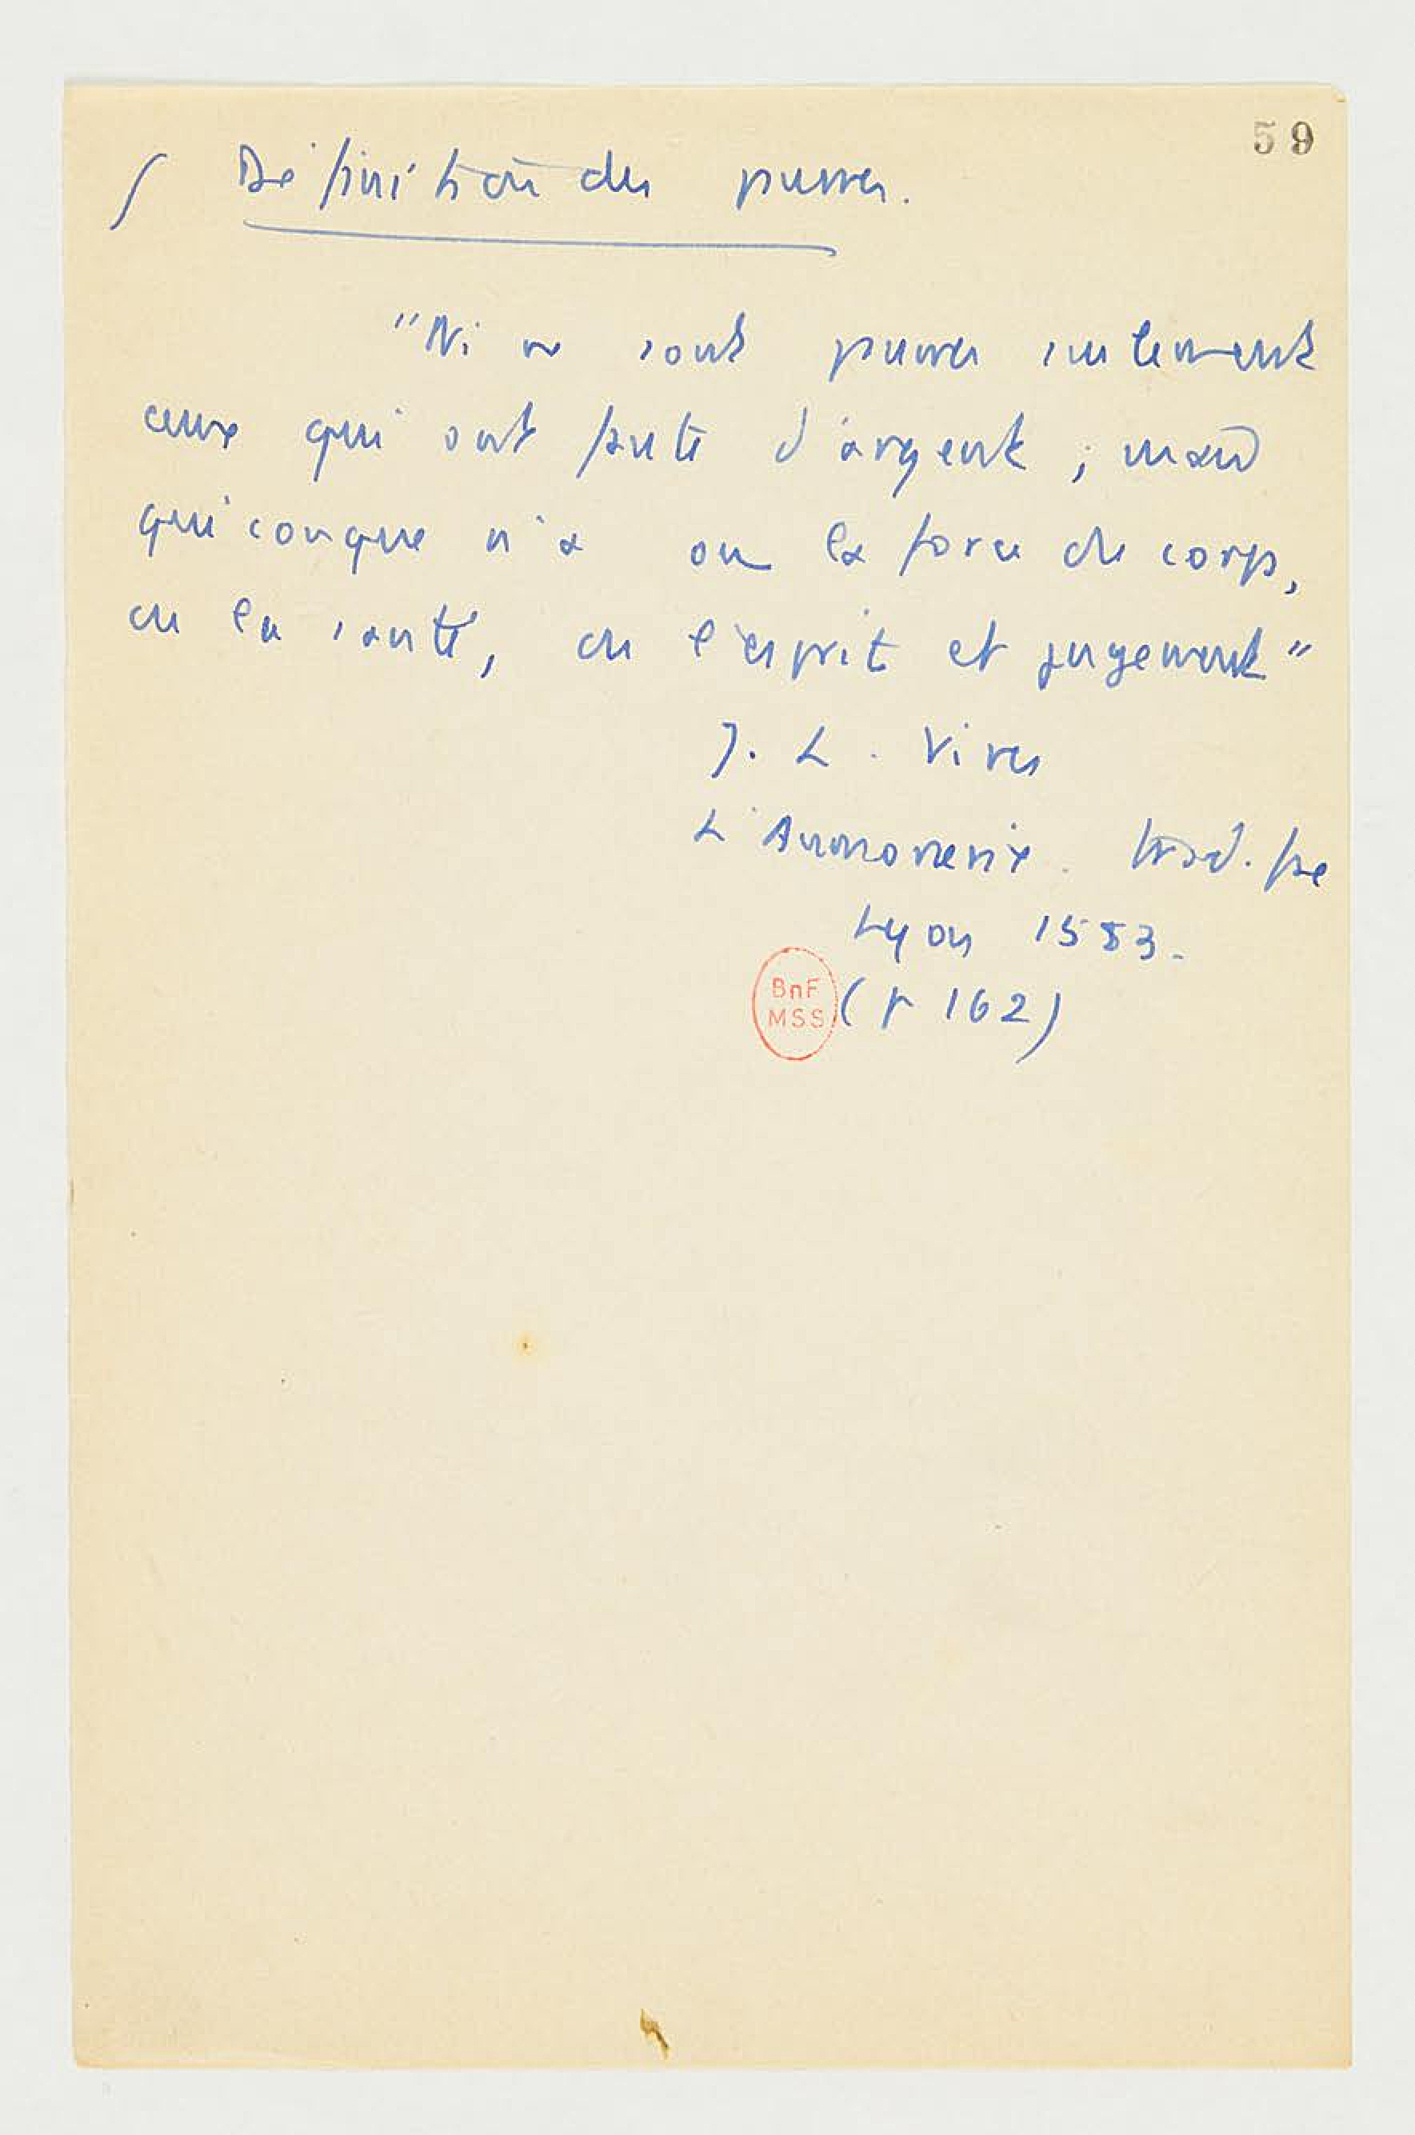 59
Définition des pauvres.
"Ni ne sont pauvres seulement
ceux qui ont faute d'argent ; mais
quiconque n'a ou la force de corps,
ou la santé, ou l'esprit et jugement"
J. L. Vives
L'Aumonerie. trad. fse
Lyon 1583.
BnF
MSS
(p 162)